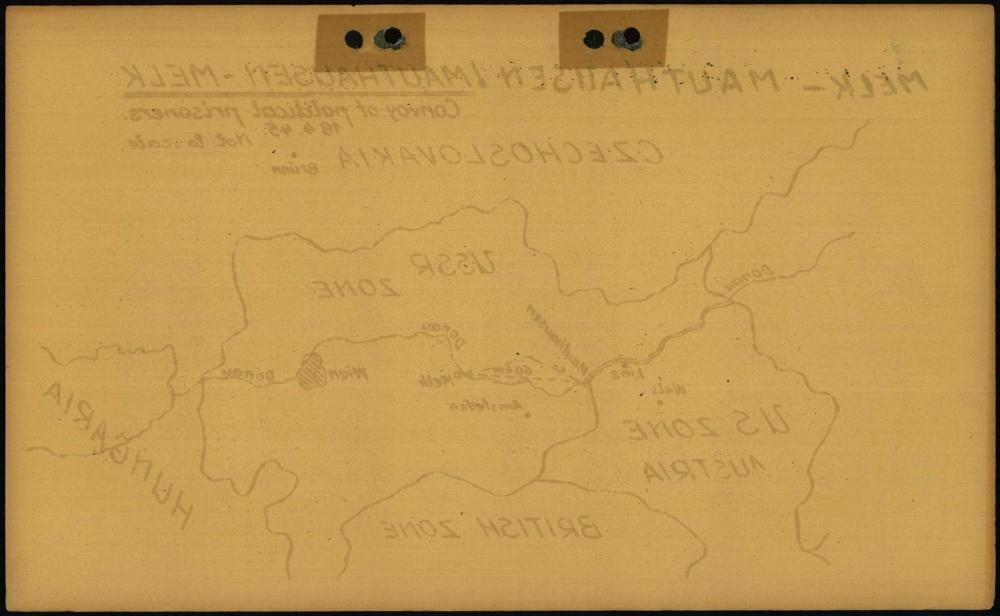 MELK – MAUTHAUSEN / MAUTHAUSEN – MELK
Convoy of political prisoners.
18.4.45.
Not to scale
CZECHOSLOVAKIA
Brünn
USSR
ZONE
Donau
Donau
Mauthausen
Linz
60 km
Melk
Wien
Donau
Wels
Amstetten
HUNGARIA
U S ZONE
AUSTRIA
BRITISH ZONE